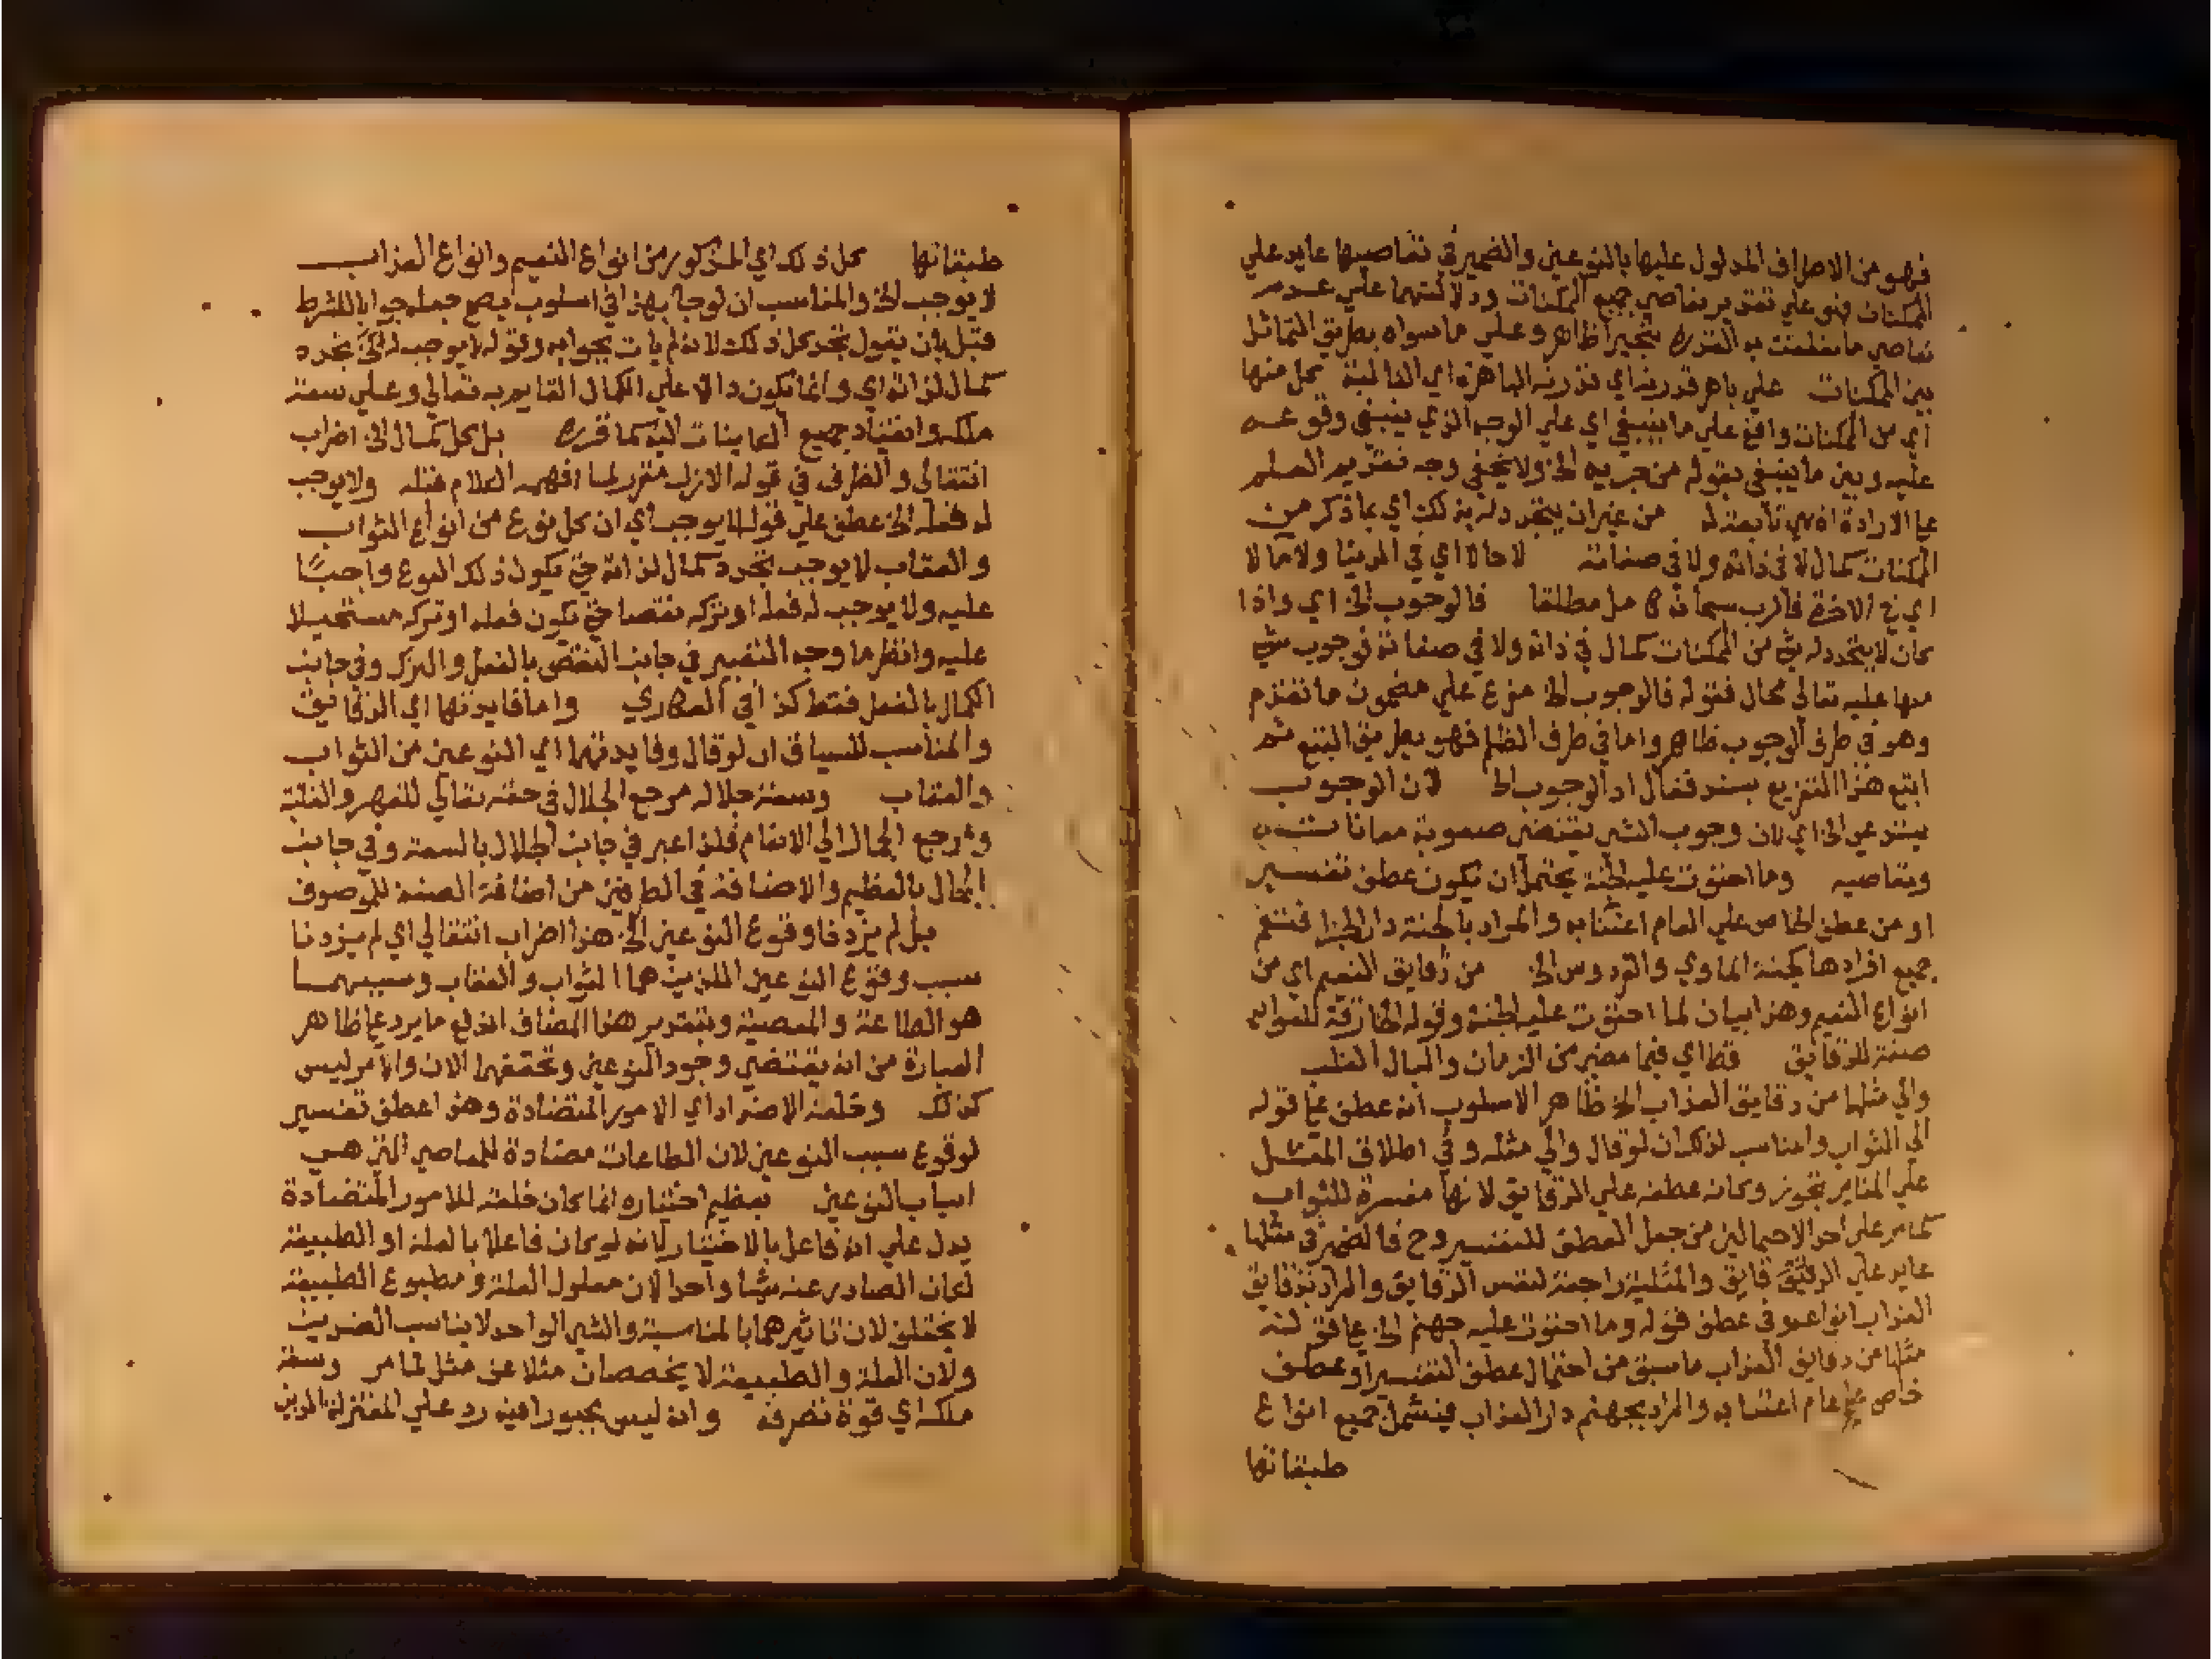 فهو من الاطراف المدلول عليها بالنوعين والضمير في تقاصيها عايد علي
الممكنات فهو علي تقدير تقاصي جميع الممكنات ودلالتها علي عدم
تعاصي ما تعلقت به القدرة تنجيزا ظاهر وعلي ما سواه بطريق التماثل
بين الممكنات علي باهر قدرته اي قدرته الباهرة اي الغالبة كل منها
اي من الممكنات واقع علي ما ينبغي اي علي الوجه الذي ينبغي وقوعه
عليه وبين ما ينبغي بقوله من جريه الخ ولا يخفي وجه تقديم العلم
علي الارادة اذ هي تابعة له من غير ان يتجدد له بذلك اي بما ذكر من
الممكنات كمال لا في ذاته ولا في صفاته لا حالا اي في الدنيا ولا مالا
اي في الاخرة فالرب سبحانه كامل مطلقا فالوجوب الخ اي واذا
كان لا يتجدد له شي من الممكنات كمال في ذاته ولا في صفاته فوجوب شي
منها عليه تعالي محال فقوله فالوجوب الخ مفرع علي مضمون ما تقدم
وهو في طرف الوجوب ظاهر واما في طرف الظلم فهو بطريق التبع ثم
اتبع هذا التفريع بسند فقال اذ الوجوب الخ لان الوجوب
يستدعي الخ اي لان وجوب الشي يقتضي صعوبة
وتعاصيه وما احتوت عليه الجنة يحتمل ان يكون عطف تفسير
او من عطف الخاص علي العام اعتنا به والمراد بالجنة دار الجزا فتعم
جميع افرادها كجنة الماوي والفردوس الخ من دقايق النعيم اي من
انواع النعيم وهذا بيان لما احتوت عليه الجنة وقوله الخارقة للعوايد
صفة للدقايق قط اي فيما مضي من الزمان والبال القلب
والي مثلها من دقايق العذاب الخ ظاهر الاسلوب انه عطف علي قوله
الي الثواب والمناسب لذلك ان لو قال والي مثله وفي اطلاق المثل
علي المغاير تجوز وكانه عطفه علي الدقايق لانها مفسرة للثواب
كما مر علي احد الاحتمالين من جعل العطف للتفسير وح فالضمير في مثلها
عايد علي الدقايق والمثلية راجعة لنفس الدقايق والمراد بدقايق
العذاب انواعه وفي عطف قوله وما احتوت عليه جهنم الخ علي قوله
مثلها من دقايق العذاب ما سبق من احتمال عطف التفسير او عطف
خاص علي عام اعتنا به والمراد بجهنم دار العذاب فيشمل جميع انواع
طبقاتها
طبقاتها كل ذلك اي المذكور من انواع النعيم وانواع العذاب
لا يوجب الخ والمناسب ان لو جا بهذا في اسلوب يصح جعله جوابا للشرط
قبل بان يقول تجد كل ذلك لانه لم يات بجوابه وقوله لا يوجب له الخ تجدد
كمال لذاته اي وانما تكون دالة علي الكمال القايم به تعالي وعلي سعة
ملكه وانقياد جميع الكاينات اليه كما قرره بل كل كمال الخ اضراب
انتقالي والظرف في قوله الازل مقرر لما افهمه الكلام قبله ولا يوجب
له فعله الخ عطف علي قوله لا يوجب اي ان كل نوع من انواع الثواب
والعقاب لا يوجب تجدد كمال لذاته حتي يكون ذلك النوع واجبا
عليه ولا يوجب له فعله او تركه نقصا حتي يكون فعله او تركه مستحيلا
عليه وانظر ما وجه التعبير في جانب النقص بالفعل والترك وفي جانب
الكمال بالفعل فقط كذا في السكاري واما فايدتها اي الدقايق
والمناسب للسياق ان لو قال وفايدتهما اي النوعين من الثواب
والعقاب وسعة جلاله مرجع الجلال في حقه تعالي للقهر والغلبة
ومرجع الجمال الي الانعام فلذا عبر في جانب الجلال بالسعة وفي جانب
الجمال بالعظيم والاضافة في الطرفين من اضافة الصفة للموصوف
بل لم يزدنا وقوع النوعين الخ هذا اضراب انتقالي اي لم يزدنا
سبب وقوع النوعين اللذين هما الثواب والعقاب وسببهما
هو الطاعة والمعصية وبتقدير هذا المضاف اندفع ما يرد علي ظاهر
العبارة من انه يقتضي وجود النوعين وتحققهما الان والامر ليس
كذلك وخلقه الاضداد اي الامور المتضادة وهذا عطف تفسير
لوقوع سبب النوعين لان الطاعات مضادة للمعاصي التي هي
اسباب النوعين بعظيم اختياره انما كان خلقه للامور المتضادة
يدل علي انه فاعل بالاختيار لانه لو كان فاعلا بالعلة او الطبيعة
لكان الصادر عنه شيا واحدا لان معلول العلة ومطبوع الطبيعة
لا يختلف لان تاثيرهما بالمناسبة والشي الواحد لا يناسب الضدين
ولان العلة والطبيعة لا يخصصان مثلا عن مثل لما مر وسعة
ملكه اي قوة تصرفه وانه ليس بمجبور فيه رد علي المعتزلة الذين